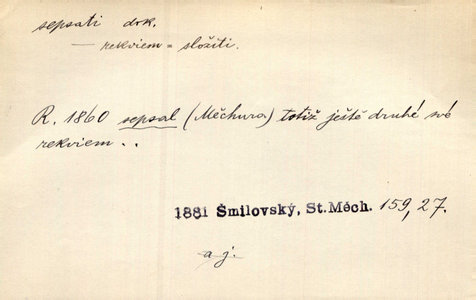 sepsati dok.
— rekviem = složiti.
R. 1860 sepsal (Měchura) totiž ještě druhé své
rekviem . .
1881 Šmilovský, St. Měch. 159, 27.
a j.